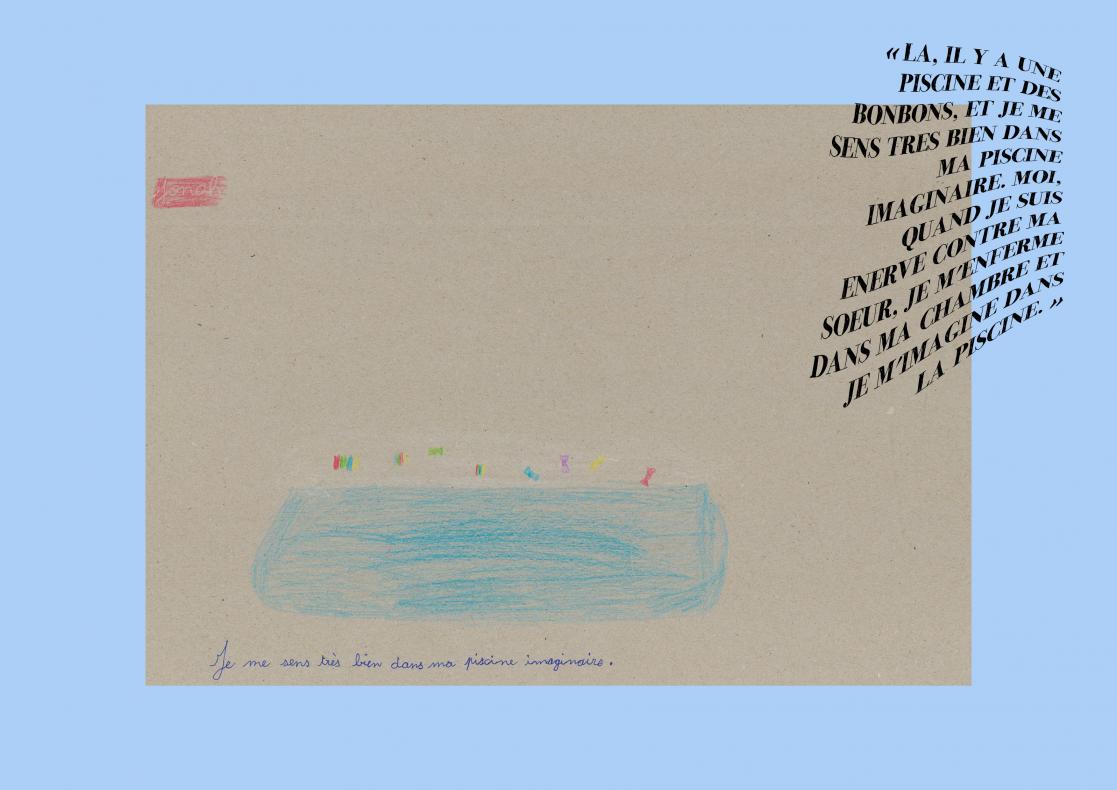 « LA, IL Y A UNE
PISCINE ET DES
BONBONS, ET JE ME
SENS TRES BIEN DANS
MA PISCINE
IMAGINAIRE. MOI,
QUAND JE SUIS
ENERVE CONTRE MA
SOEUR, JE M'ENFERME
DANS MA CHAMBRE ET
JE M'IMAGINE DANS
LA PISCINE. »
Je me sens très bien dans ma piscine imaginaire.